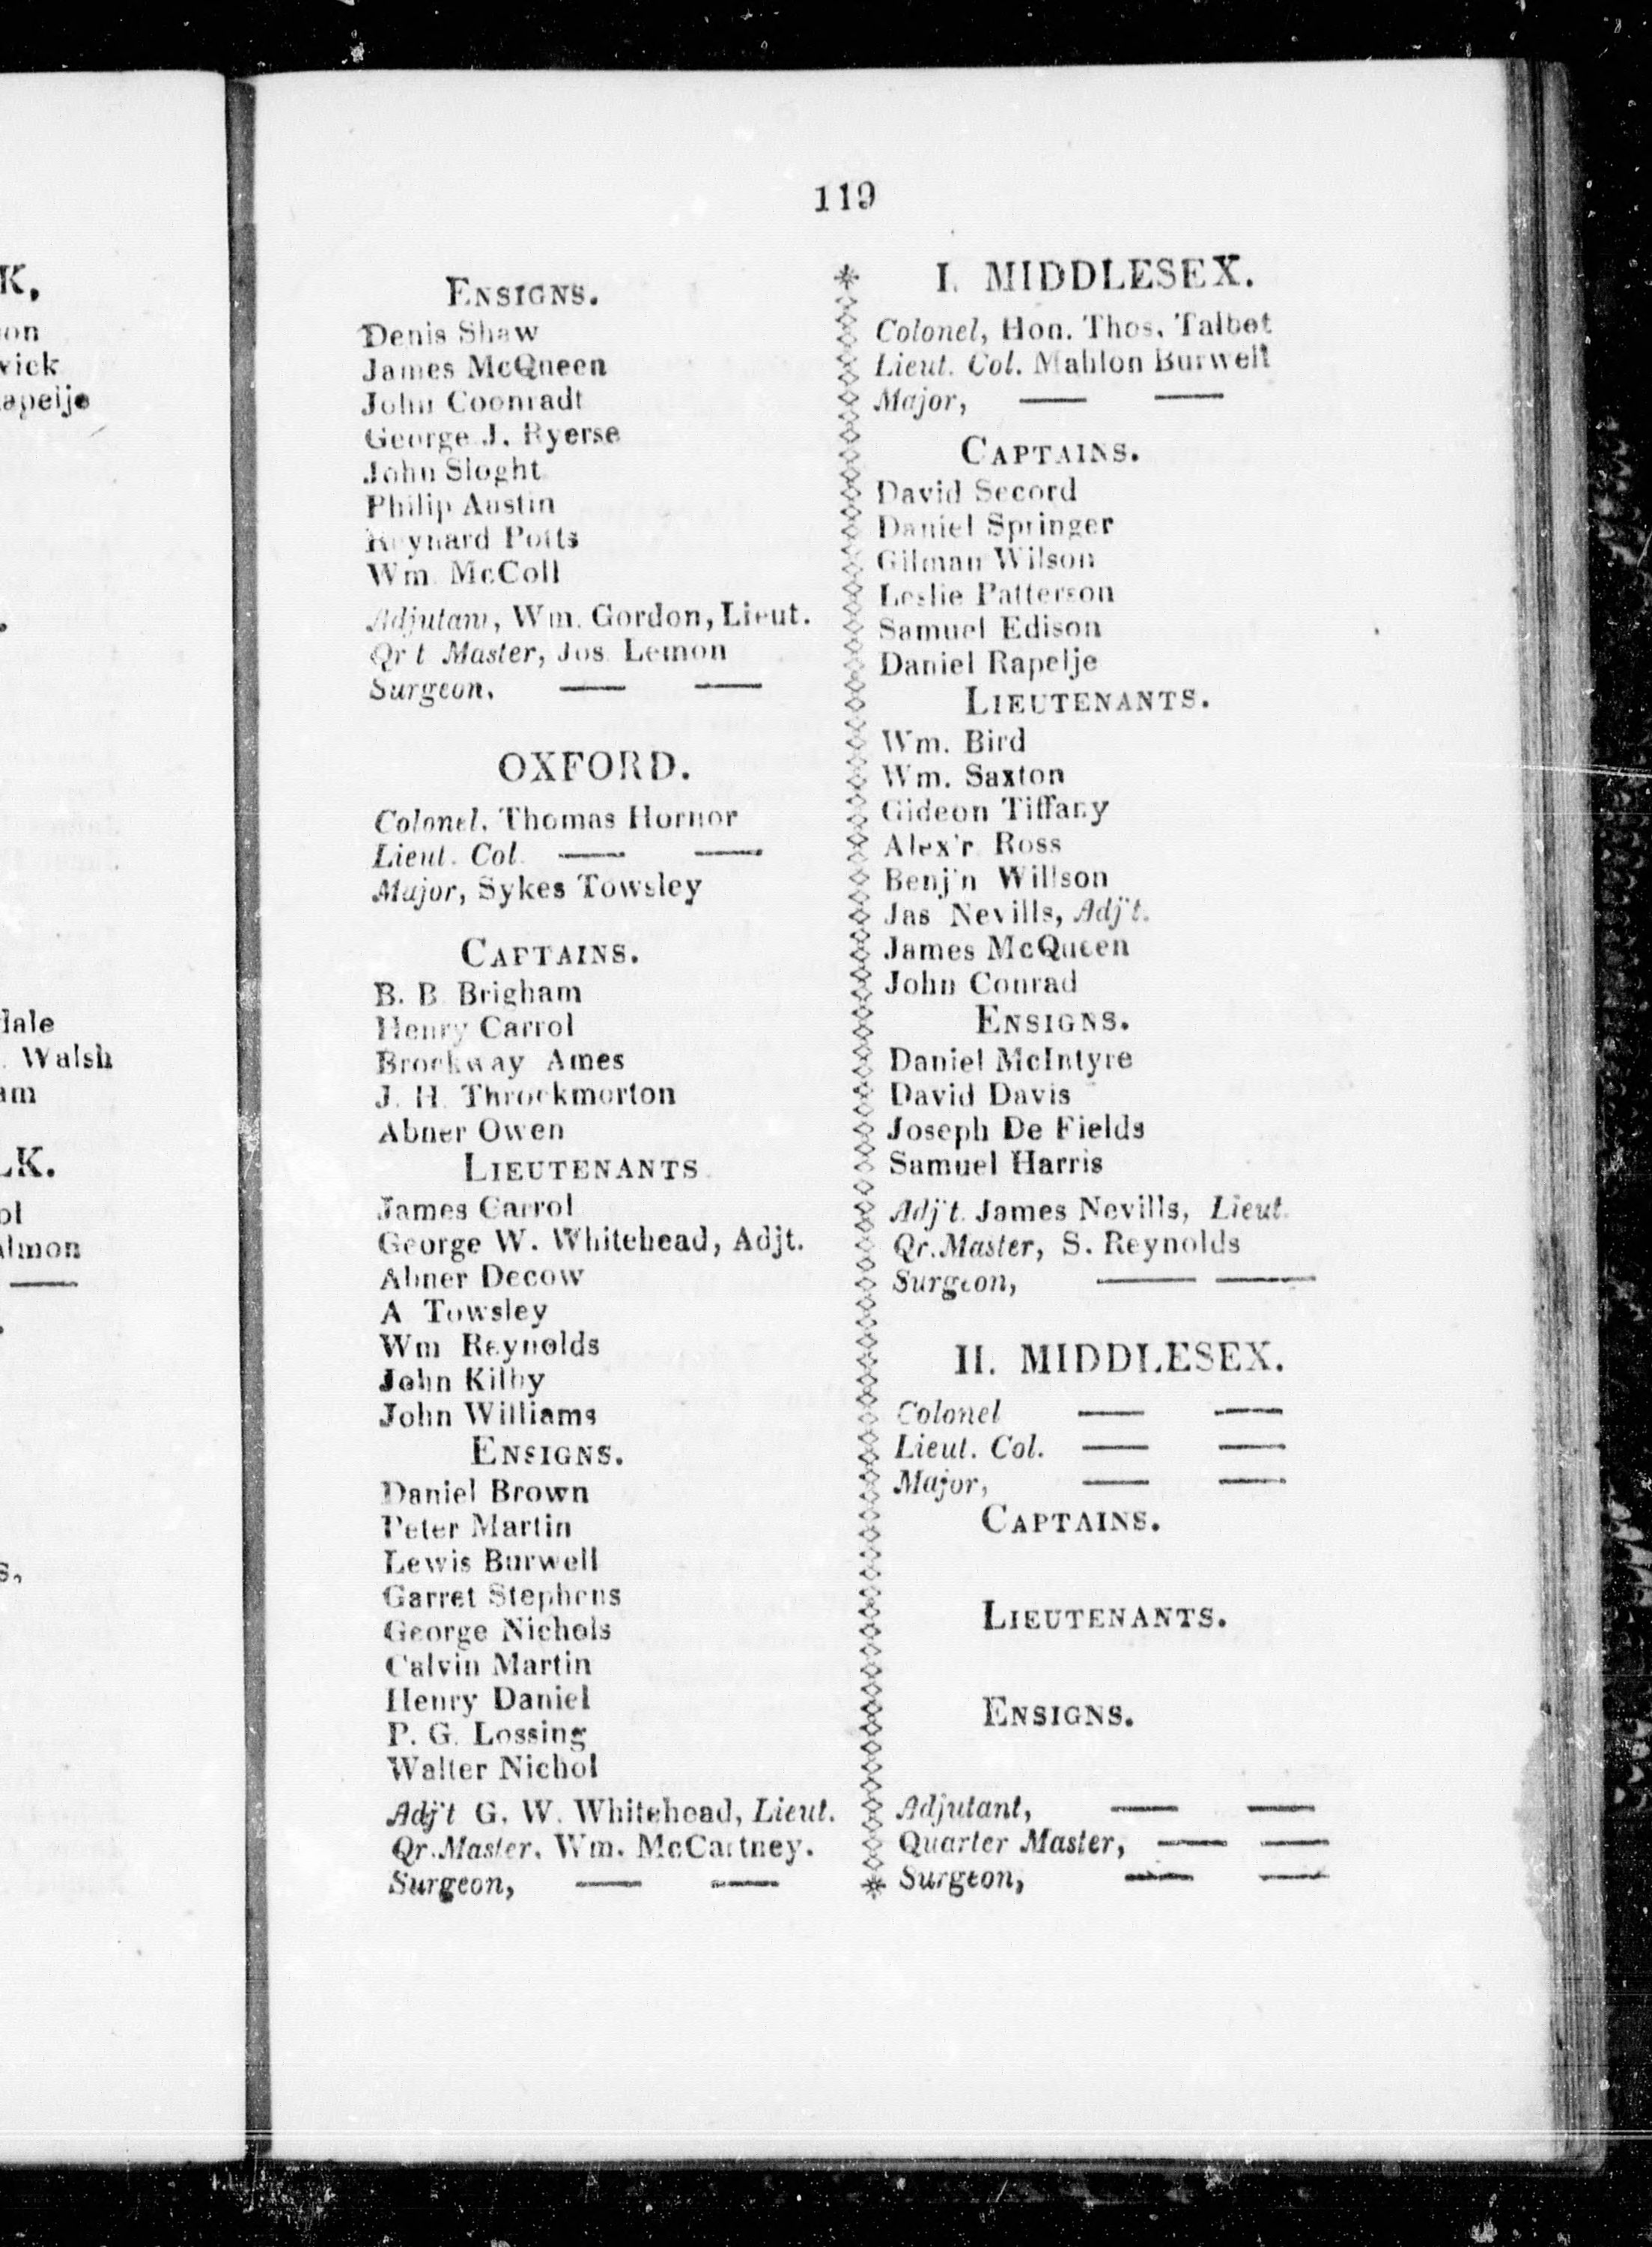 119
ENSIGNS.
Denis Shaw
James McQueen
John Coonradt
George J. Ryerse
John Sloght
Philip Austin
Reynard Potts
Wm. McColl
Adjutant, Wm. Gordon, Lieut.
Qr t Master, Jos. Lemon
Surgeon, — —
OXFORD.
Colonel, Thomas Hornor
Lieut. Col. — —
Major, Sykes Towsley
CAPTAINS.
B. B. Brigham
Henry Carrol
Brockway Ames
J. H. Throckmorton
Abner Owen
LIEUTENANTS
James Carrol
George W. Whitehead, Adjt.
Abner Decow
A Towsley
Wm Reynolds
John Kilby
John Williams
ENSIGNS.
Daniel Brown
Peter Martin
Lewis Burwell
Garret Stephens
George Nichols
Calvin Martin
Henry Daniel
P. G. Lossing
Walter Nichol
Adj't G. W. Whitehead, Lieut.
Qr.Master, Wm. McCartney.
Surgeon, — —
I. MIDDLESEX.
Colonel, Hon. Thos. Talbot
Lieut. Col. Mahlon Burwell
Major, — —
CAPTAINS.
David Secord
Daniel Springer
Gilman Wilson
Leslie Patterson
Samuel Edison
Daniel Rapelje
LIEUTENANTS.
Wm. Bird
Wm. Saxton
Gideon Tiffany
Alex'r Ross
Benj'n Willson
Jas Nevills, Adj't.
James McQueen
John Conrad
ENSIGNS.
Daniel McIntyre
David Davis
Joseph De Fields
Samuel Harris
Adj't. James Nevills, Lieut.
Qr.Master, S. Reynolds
Surgeon, — —
II. MIDDLESEX.
Colonel — —
Lieut. Col. — —
Major, — —
CAPTAINS.
LIEUTENANTS.
ENSIGNS.
Adjutant, — —
Quarter Master, — —
Surgeon, — —